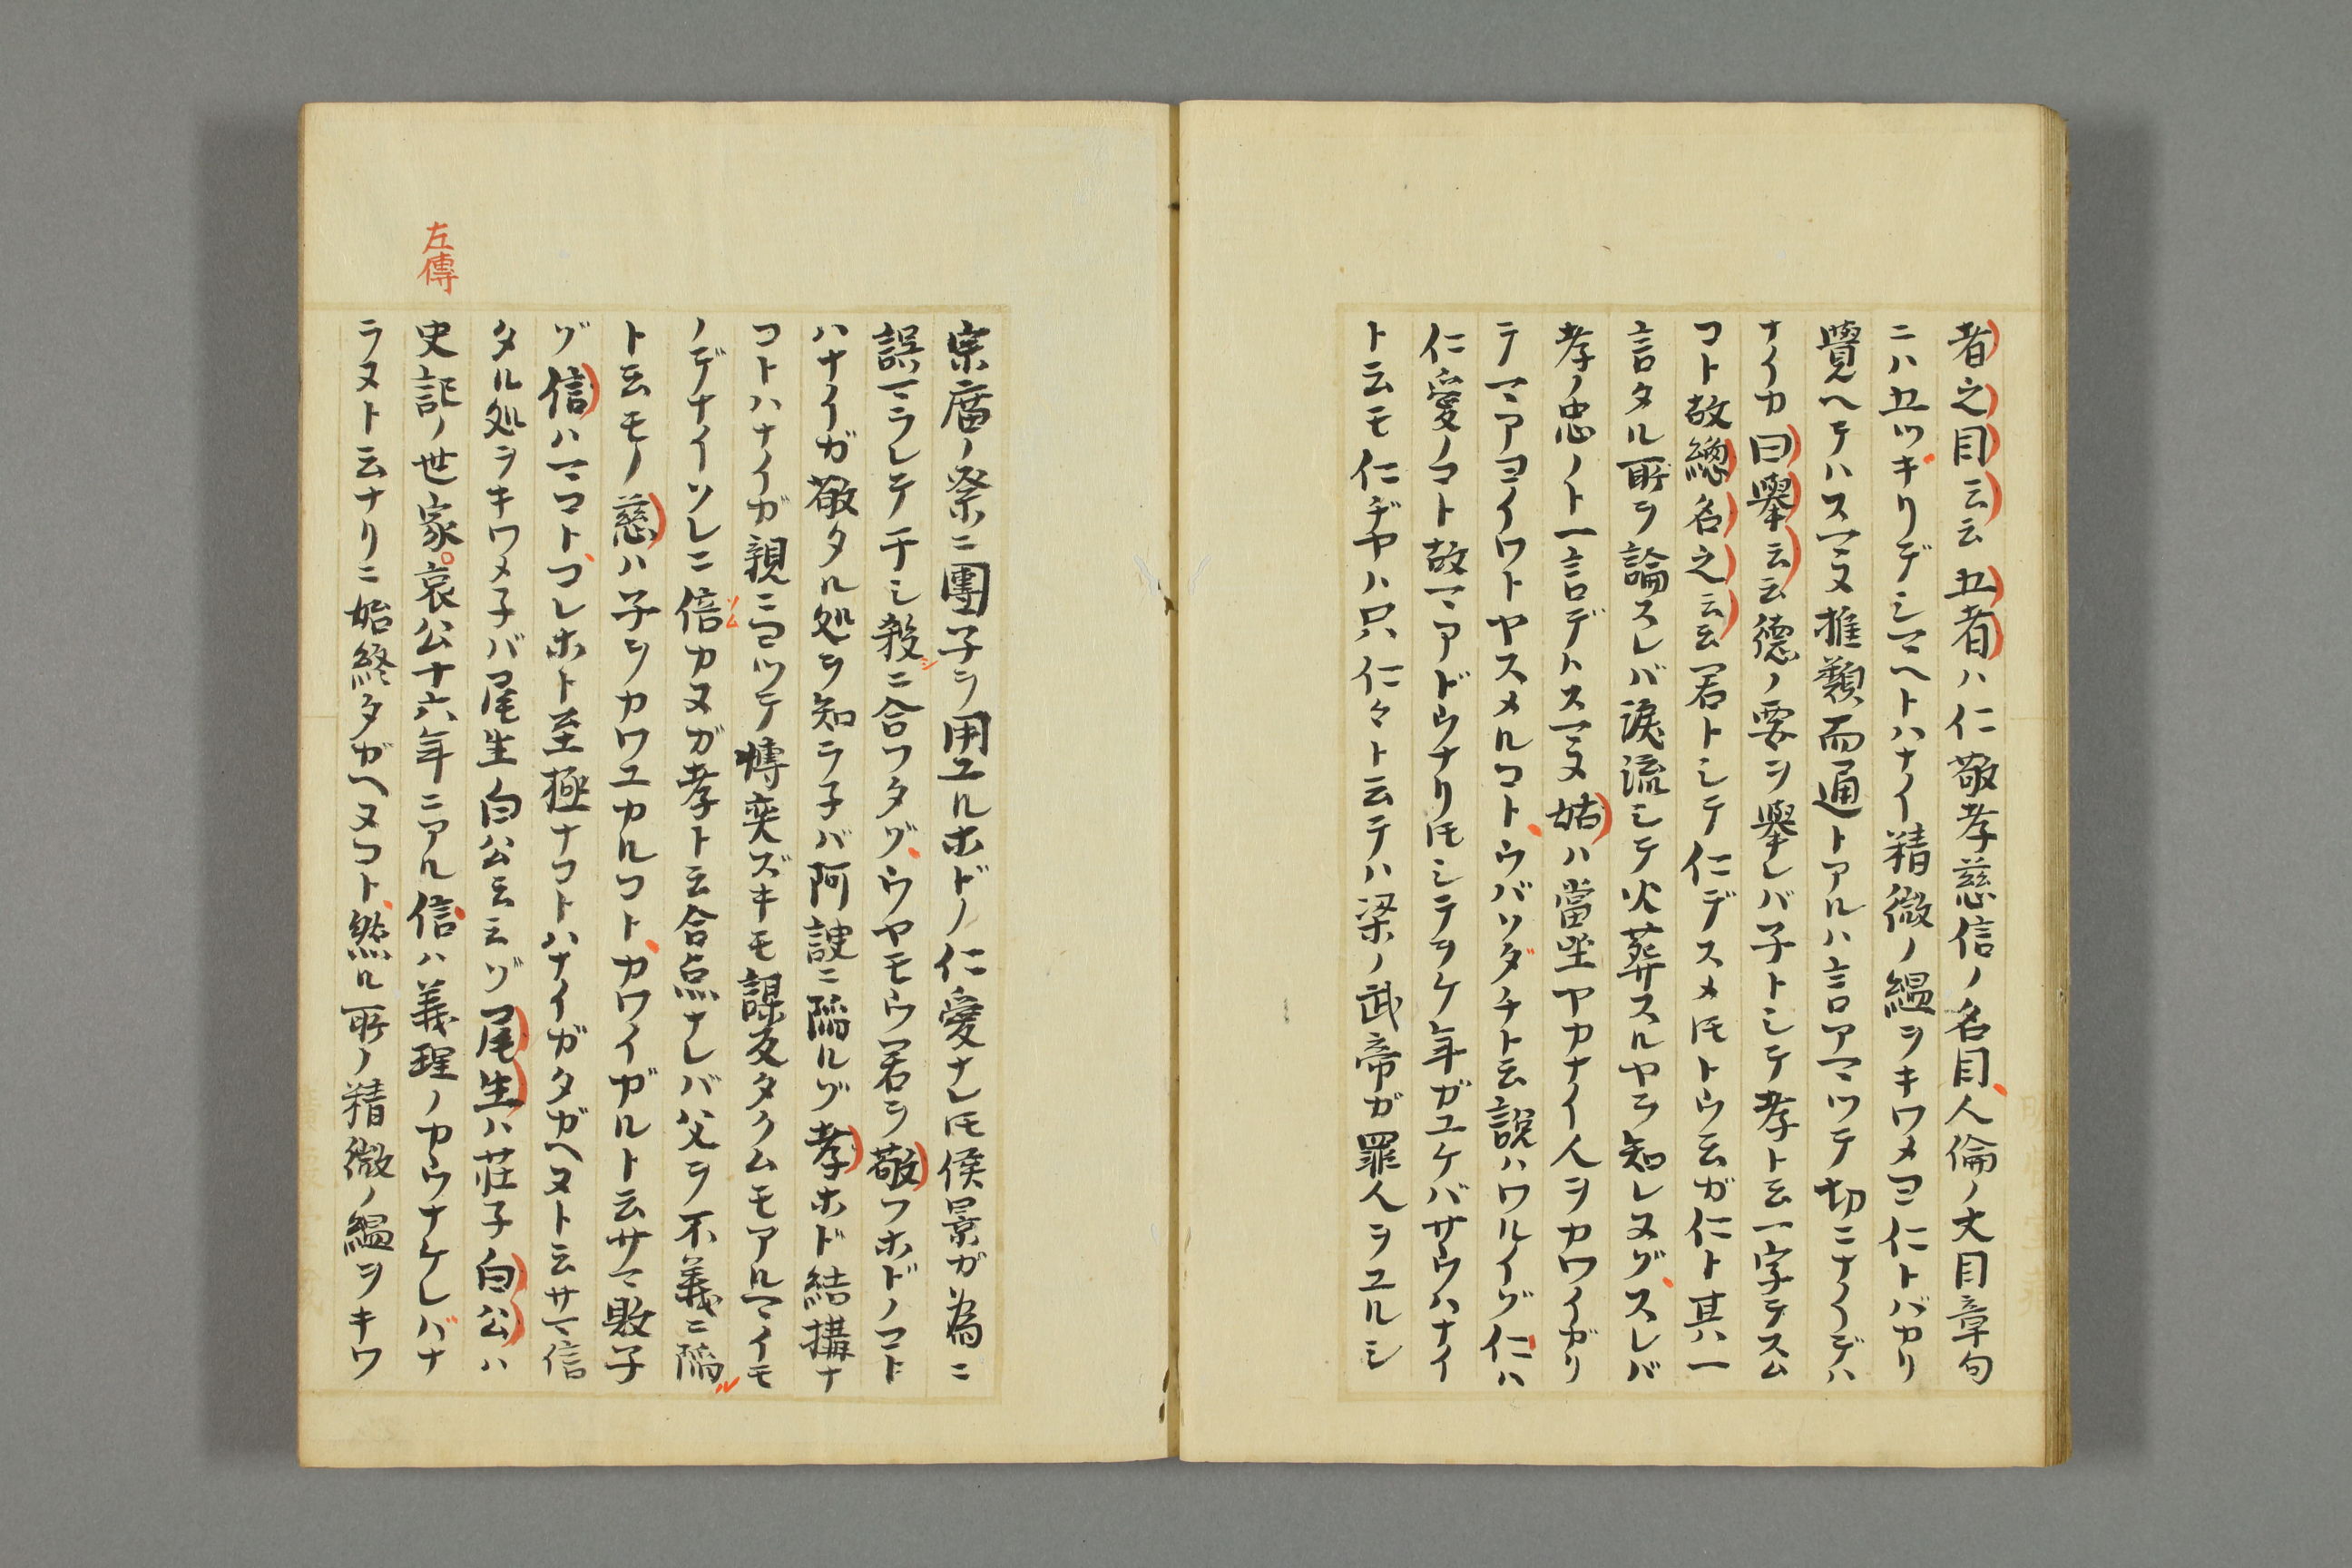 者之目云云五者ハ仁敬孝慈信ノ名目人倫ノ大目章句
ニハ五ツキリデシマヘトハナイ精微ノ緼ヲキワメヨ仁トバカリ
覺ヘテハスマヌ推類而通トアルハ言アマツテ切ニナイデハ
ナイカ曰擧云云德ノ要ヲ擧レバ子トシテ孝ト云一字テスム
コト故總名之云云君トシテ仁デスメ𪜈トウ云ガ仁ト其ハ一
言タル所ヲ論スレバ淚流シテ火葬スルヤラ知レヌゾスレバ
孝ノ忠ノト一言デハスマヌ姑ハ當坐ヤカナイ人ヲカワイガリ
テマアヨイワトヤスメルコトウバソダチト云説ハワルイゾ仁ハ
仁愛ノコト故マアドウナリ𪜈シテヲケ年ガユケバサウハナイ
ト云モ仁ヂヤハ只仁々ト云テハ梁ノ武帝ガ罪人ヲユルシ
宗庿ノ祭ニ團子ヲ用ユルホドノ仁愛ナレ𪜈侯景ガ為ニ
誤マラレテ干シ殺シニ合フタゾウヤモウ君ヲ敬フホドノコト
ハナイガ敬タル処ヲ知ラ子バ阿諛ニ陥ルゾ孝ホド結搆ナ
コトハナイガ親ニヨツテ愽奕ズキモ謀反タクムモアルマイモ
ノデナイソレニ倍ソムカヌガ孝ト云合点ナレバ父ヲ不義ニ陥ル
ト云モノ慈ハ子ヲカワユカルコトカワイガルト云サマ敗子
ゾ信ハマコトコレホト至極ナコトハナイガタガヘヌト云サマ信
タル処ヲキワメ子バ尾生白公云云ゾ尾生ハ莊子白公ハ
左傳
史記ノ世家。哀公十六年ニアル信ハ義理ノカウナケレバナ
ラヌト云ナリニ始終タガヘヌコト然ル所ノ精微ノ緼ヲキワ